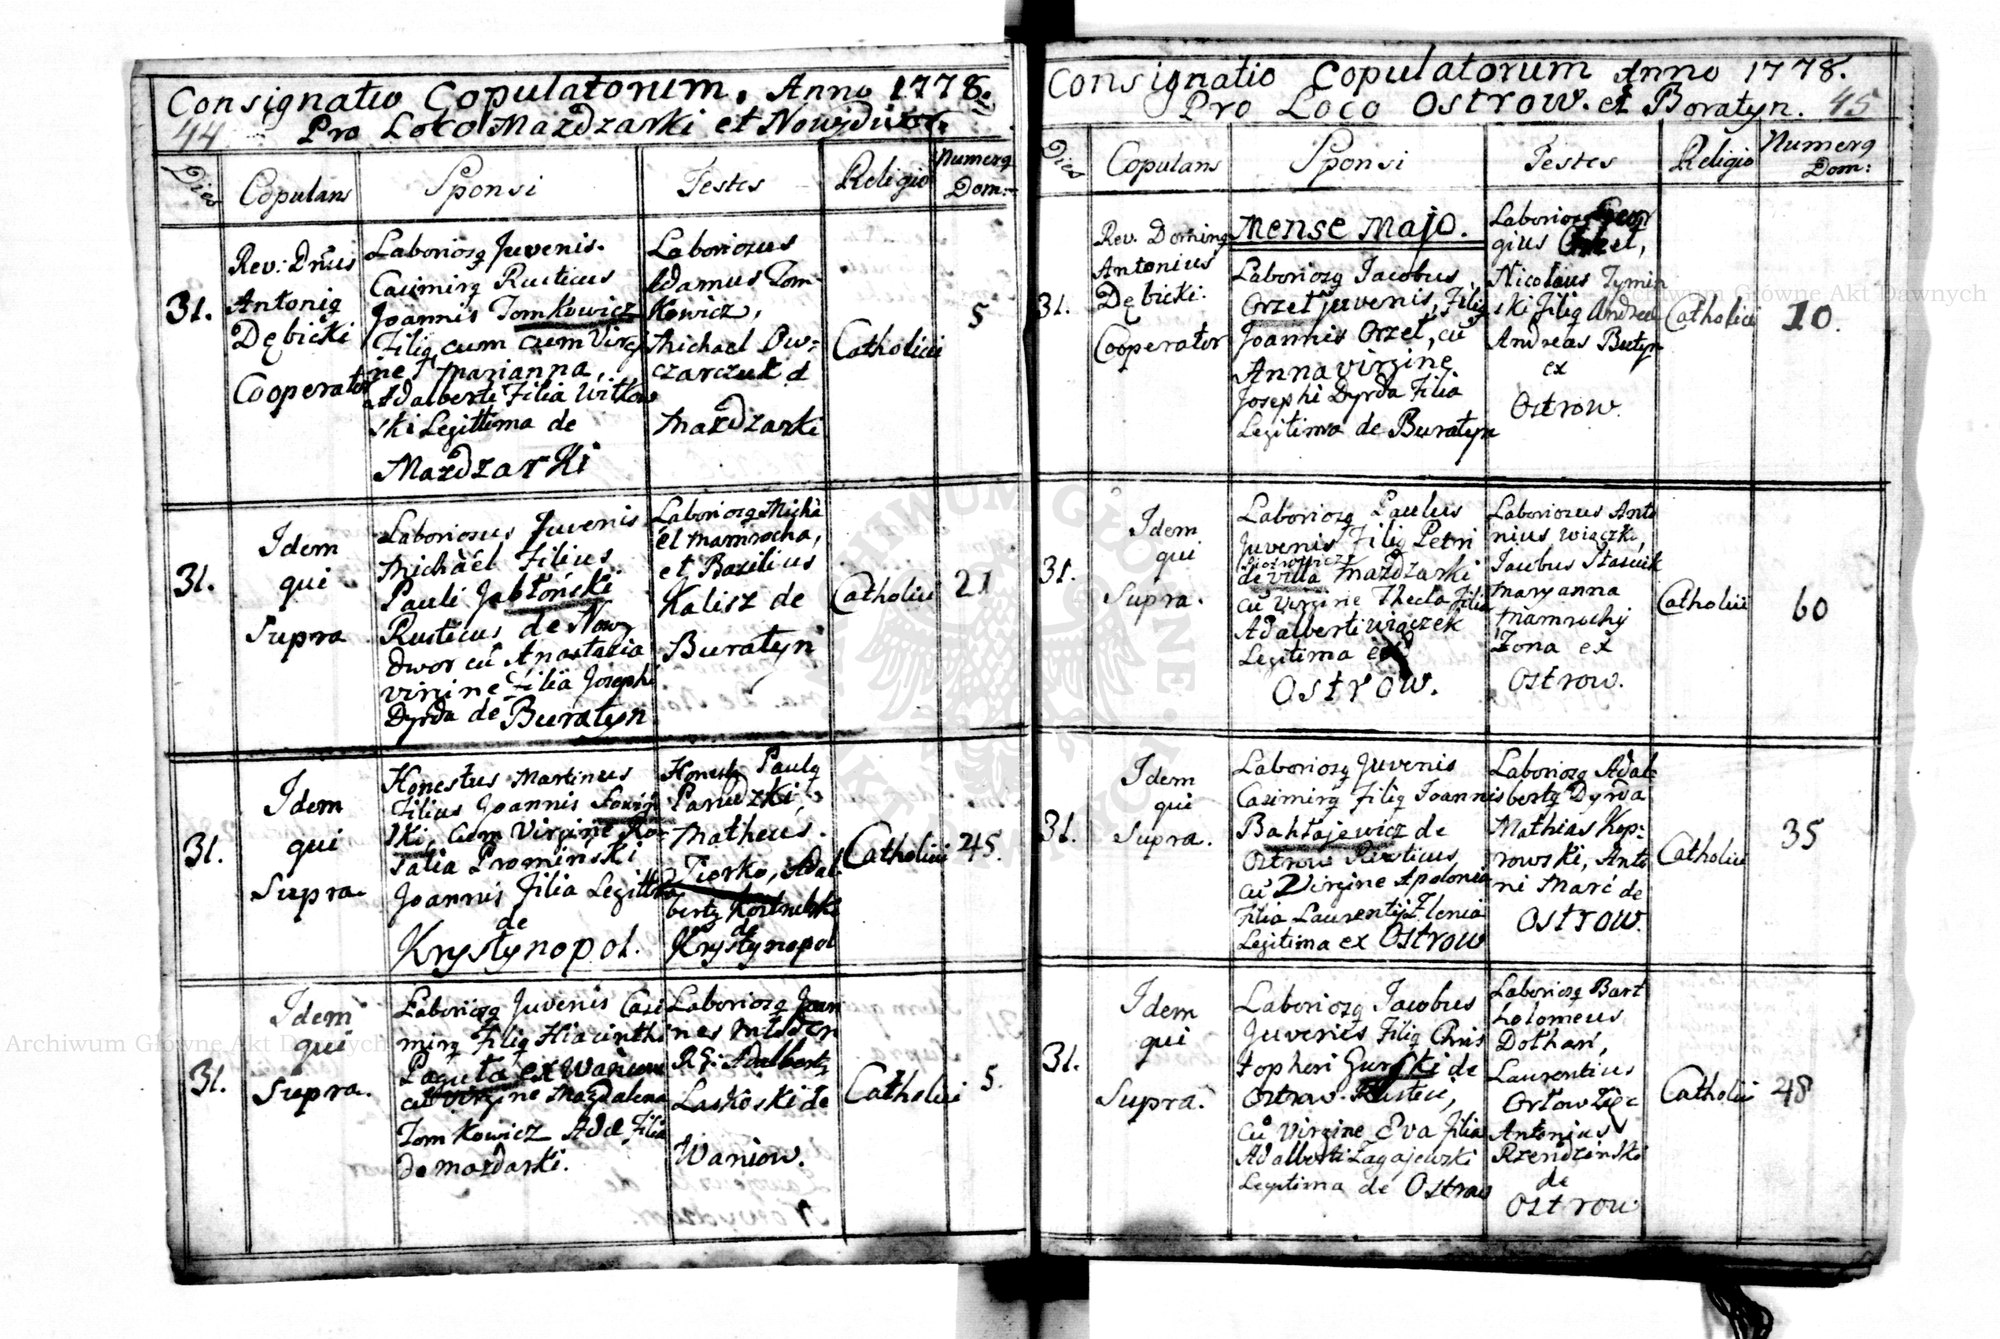 Consignatio Copulatorum. Anno 1778.
44 Pro Loco Mazdzarki et Nowydwor.
Dies
Copulans
Sponsi
Testes
Religio
Numerq
Dom:
31.
Rev: Dnus
Antoniq
Dębicki
Cooperator
Laboriosq Juvenis.
Casimirq Rusticus
Joannis Tomkowicz
Filiq cum cum Virgi
ne Marianna,
Adalberti Filia Witkow
ski Legittima de
Mazdzarki
Laboriosus
Adamus Tom-
kowicz,
Michael Ow-
czarczuk d
Mazdzarki
Catholici
5
31.
Idem
qui
Supra
Laboriosus Juvenis
Michael Filius
Pauli Jabłoński
Rusticus de Nowy
dwor cu Anastazia
Virgine Filia Josephi
Dyrda de Buratyn
Laboriosq Micha
el Mamrocha,
et Bazilius
Kalisz de
Buratyn
Catholici
21
31.
Idem
qui
Supra.
Honestus Martinus
Filius Joannis
ski, Cum Virgine Ro-
salia Promiński
Joannis Filia Legittima
de
Krystynopol.
Honestq Paulq
Matheus.
Tiorko, Adal
bertq
de
Krystynopol
Catholici
45.
31.
Idem
qui
Supra.
Laboriosq Juvenis Casi
mirq Filiq Hiacinthi
Paguta ex Waniow
cu Virgine Magdalena
Tomkowicz Adae Filia
de Mazdarki.
Laboriosq Joan
nes
Adalbertq
Laskoski de
Waniow.
Catholici
5.
Consignatio Copulatorum Anno 1778.
Pro Loco Ostrow. et Boratyn. 45
Dies
Copulans
Sponsi
Testes
Religio
Numerq
Dom:
31.
Rev. Dominq
Antonius
Dębicki.
Cooperator
Mense Majo.
Laboriosq Jacobus
Orzeł juvenis, Filiq
Joannis Orzeł, cu
Anna virgine
Josephi Dyrda Filia
Legitima de Buratyn
Laboriosq Geor
gius Orzeł,
Nicolaus Tymin
ski Filiq Andreae
Andreas Butyn
ex
Ostrow.
Catholici
10.
31.
Idem
qui
Supra.
Laboriosq Paulus
Juvenis Filiq Petri
Piotrowicz
de villa Mazdzarki
cu Virgine Thecla Filia
Adalberti Wiączek
Legitima ex
Ostrow.
Laboriosus Anto
nius Wiączki,
Jacobus Stasiuk
Maryanna
Mamrochy
Zona ex
Ostrow.
Catholici
60
31.
Idem
qui
Supra.
Laboriosq Juvenis
Casimirq Filiq Joannis
Bahtajewicz de
Ostrow Rusticus,
cu Virgine Apolonia
Filia Laurentij Zlenia
Legitima ex Ostrow
Laboriosq Adal
bertq Dyrda
Mathias Kop-
rowski, Anto
ni Marć de
Ostrow.
Catholici
35
31.
Idem
qui
Supra.
Laboriosq Jacobus
Juvenis Filiq Chris
topheri Gurski de
Ostrow. Rustici,
cu Virgine Eva Filia
Adalberti Zagajewski
Legitima de Ostrow
Laboriosq Bart
holomeus
Dothan,
Laurentius
Antonius
Rzendzinski
de
Ostrow
Catholici
48
Archiwum Główne Akt Dawnych
Archiwum Główne Akt Dawnych
ARCHIWUM GŁÓWNE · AKT DAWNYCH ·